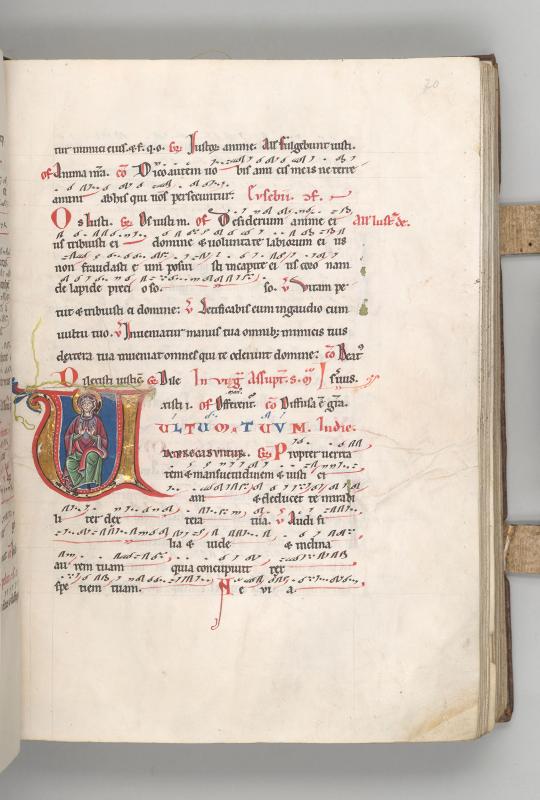 70
tur inimici eius. & f. q. o. Iustoꝝ anime. All̄ fulgebunt iusti.
of Anima nr̄a. co Dico autem uo bis amicis meis ne terre
amini ab his qui uos persecuntur. Eusebii. cf.
Os Iusti. Ds iustin. of Desiderium anime ei
us tribuisti ei domine & uoluntate labiorum ei us
non fraudasti e um posui sti in capite ei us coro nam
de lapide preci o so. so. v Uitam pe
tiit & tribuisti ei domine: v Letificabis eum in gaudio cum
uultu tuo. v Inueniatur manus tua omnibꝫ inimicis tuis
dextera tua inueniat omnes qui te oderunt domine: co Beatꝰ
Dilexisti iusticiā In vig̃ Assupt̄. s. m̄
xisti i. of Offerent̄. co Diffusa ē gr̄a.
ULTUM TUUM. In die.
Propter uerita
tem & mansuetudinem & iusti ci
am & deducet te mirabi
li ter dex tera tua. v Audi fi
lia & uide & inclina
aurem tuam quia concupiuit rex
spe tiem tuam. A e vi a.